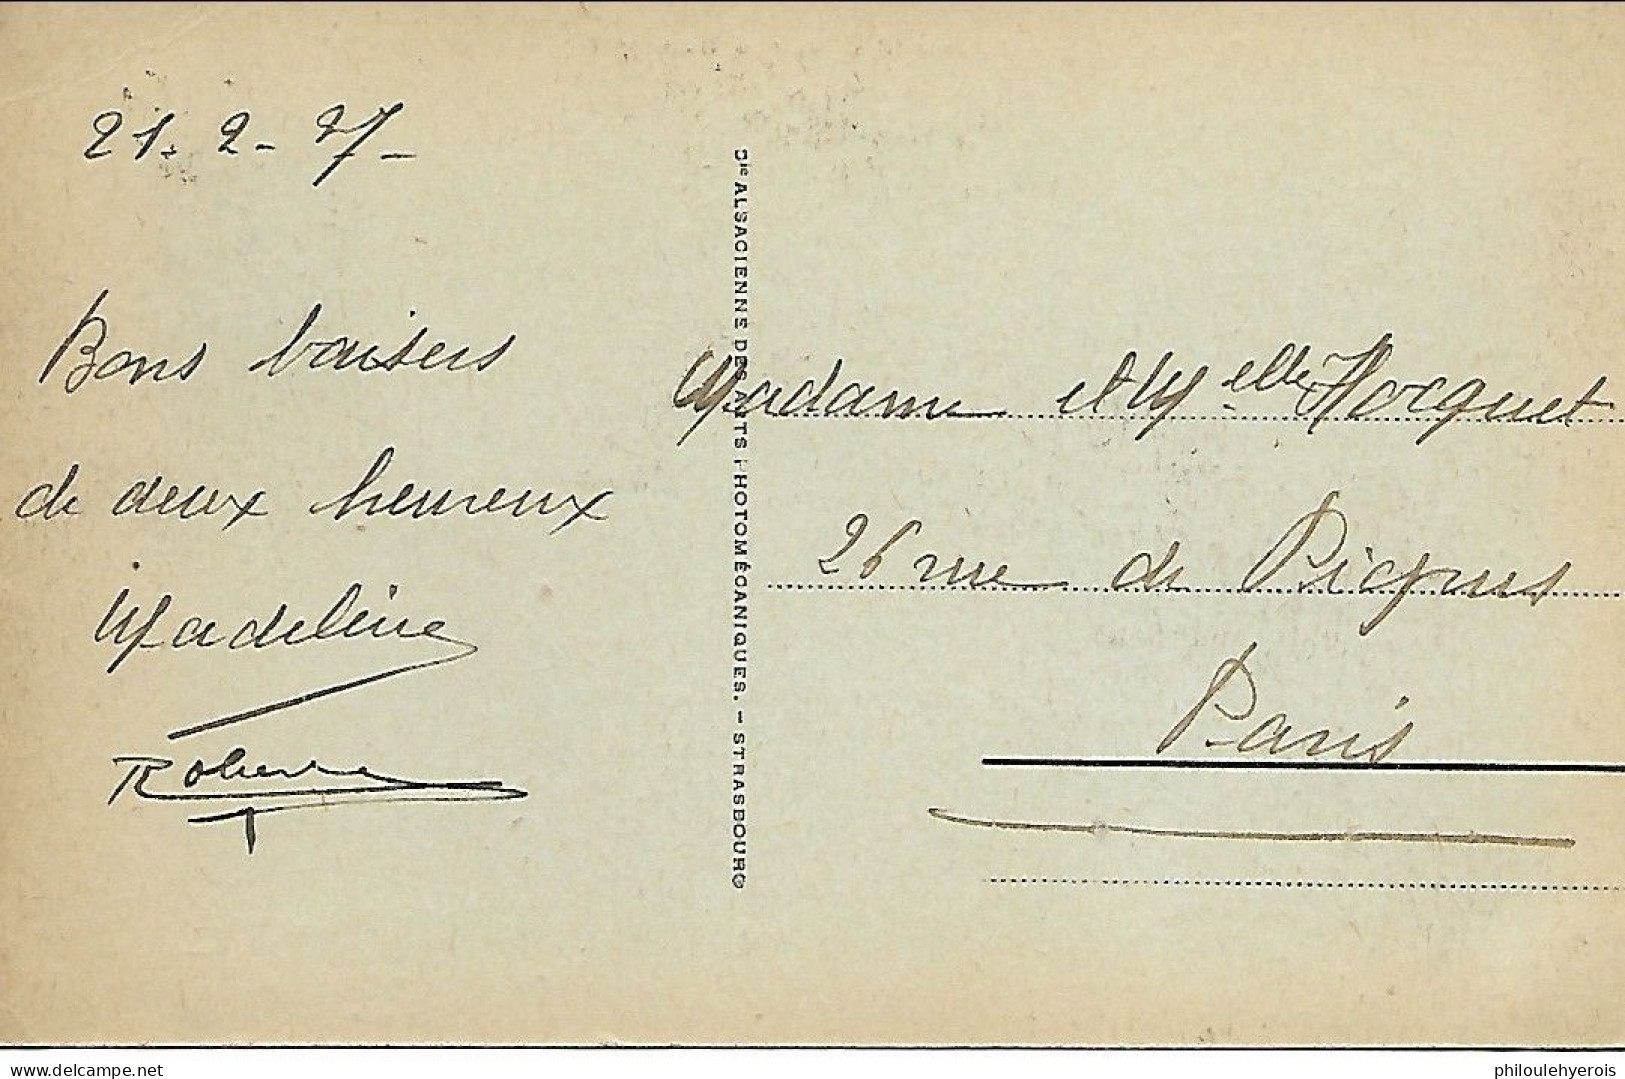 21. 2 - 27 -
Bons baisers
de deux heureux
Madeleine
Cie ALSACIENNE DES ARTS PHOTOMÉCANIQUES. – STRASBOURG
Madame et Melle Hocquet
26 rue de Picpus
Paris
delcampe.net
philoulehyerois